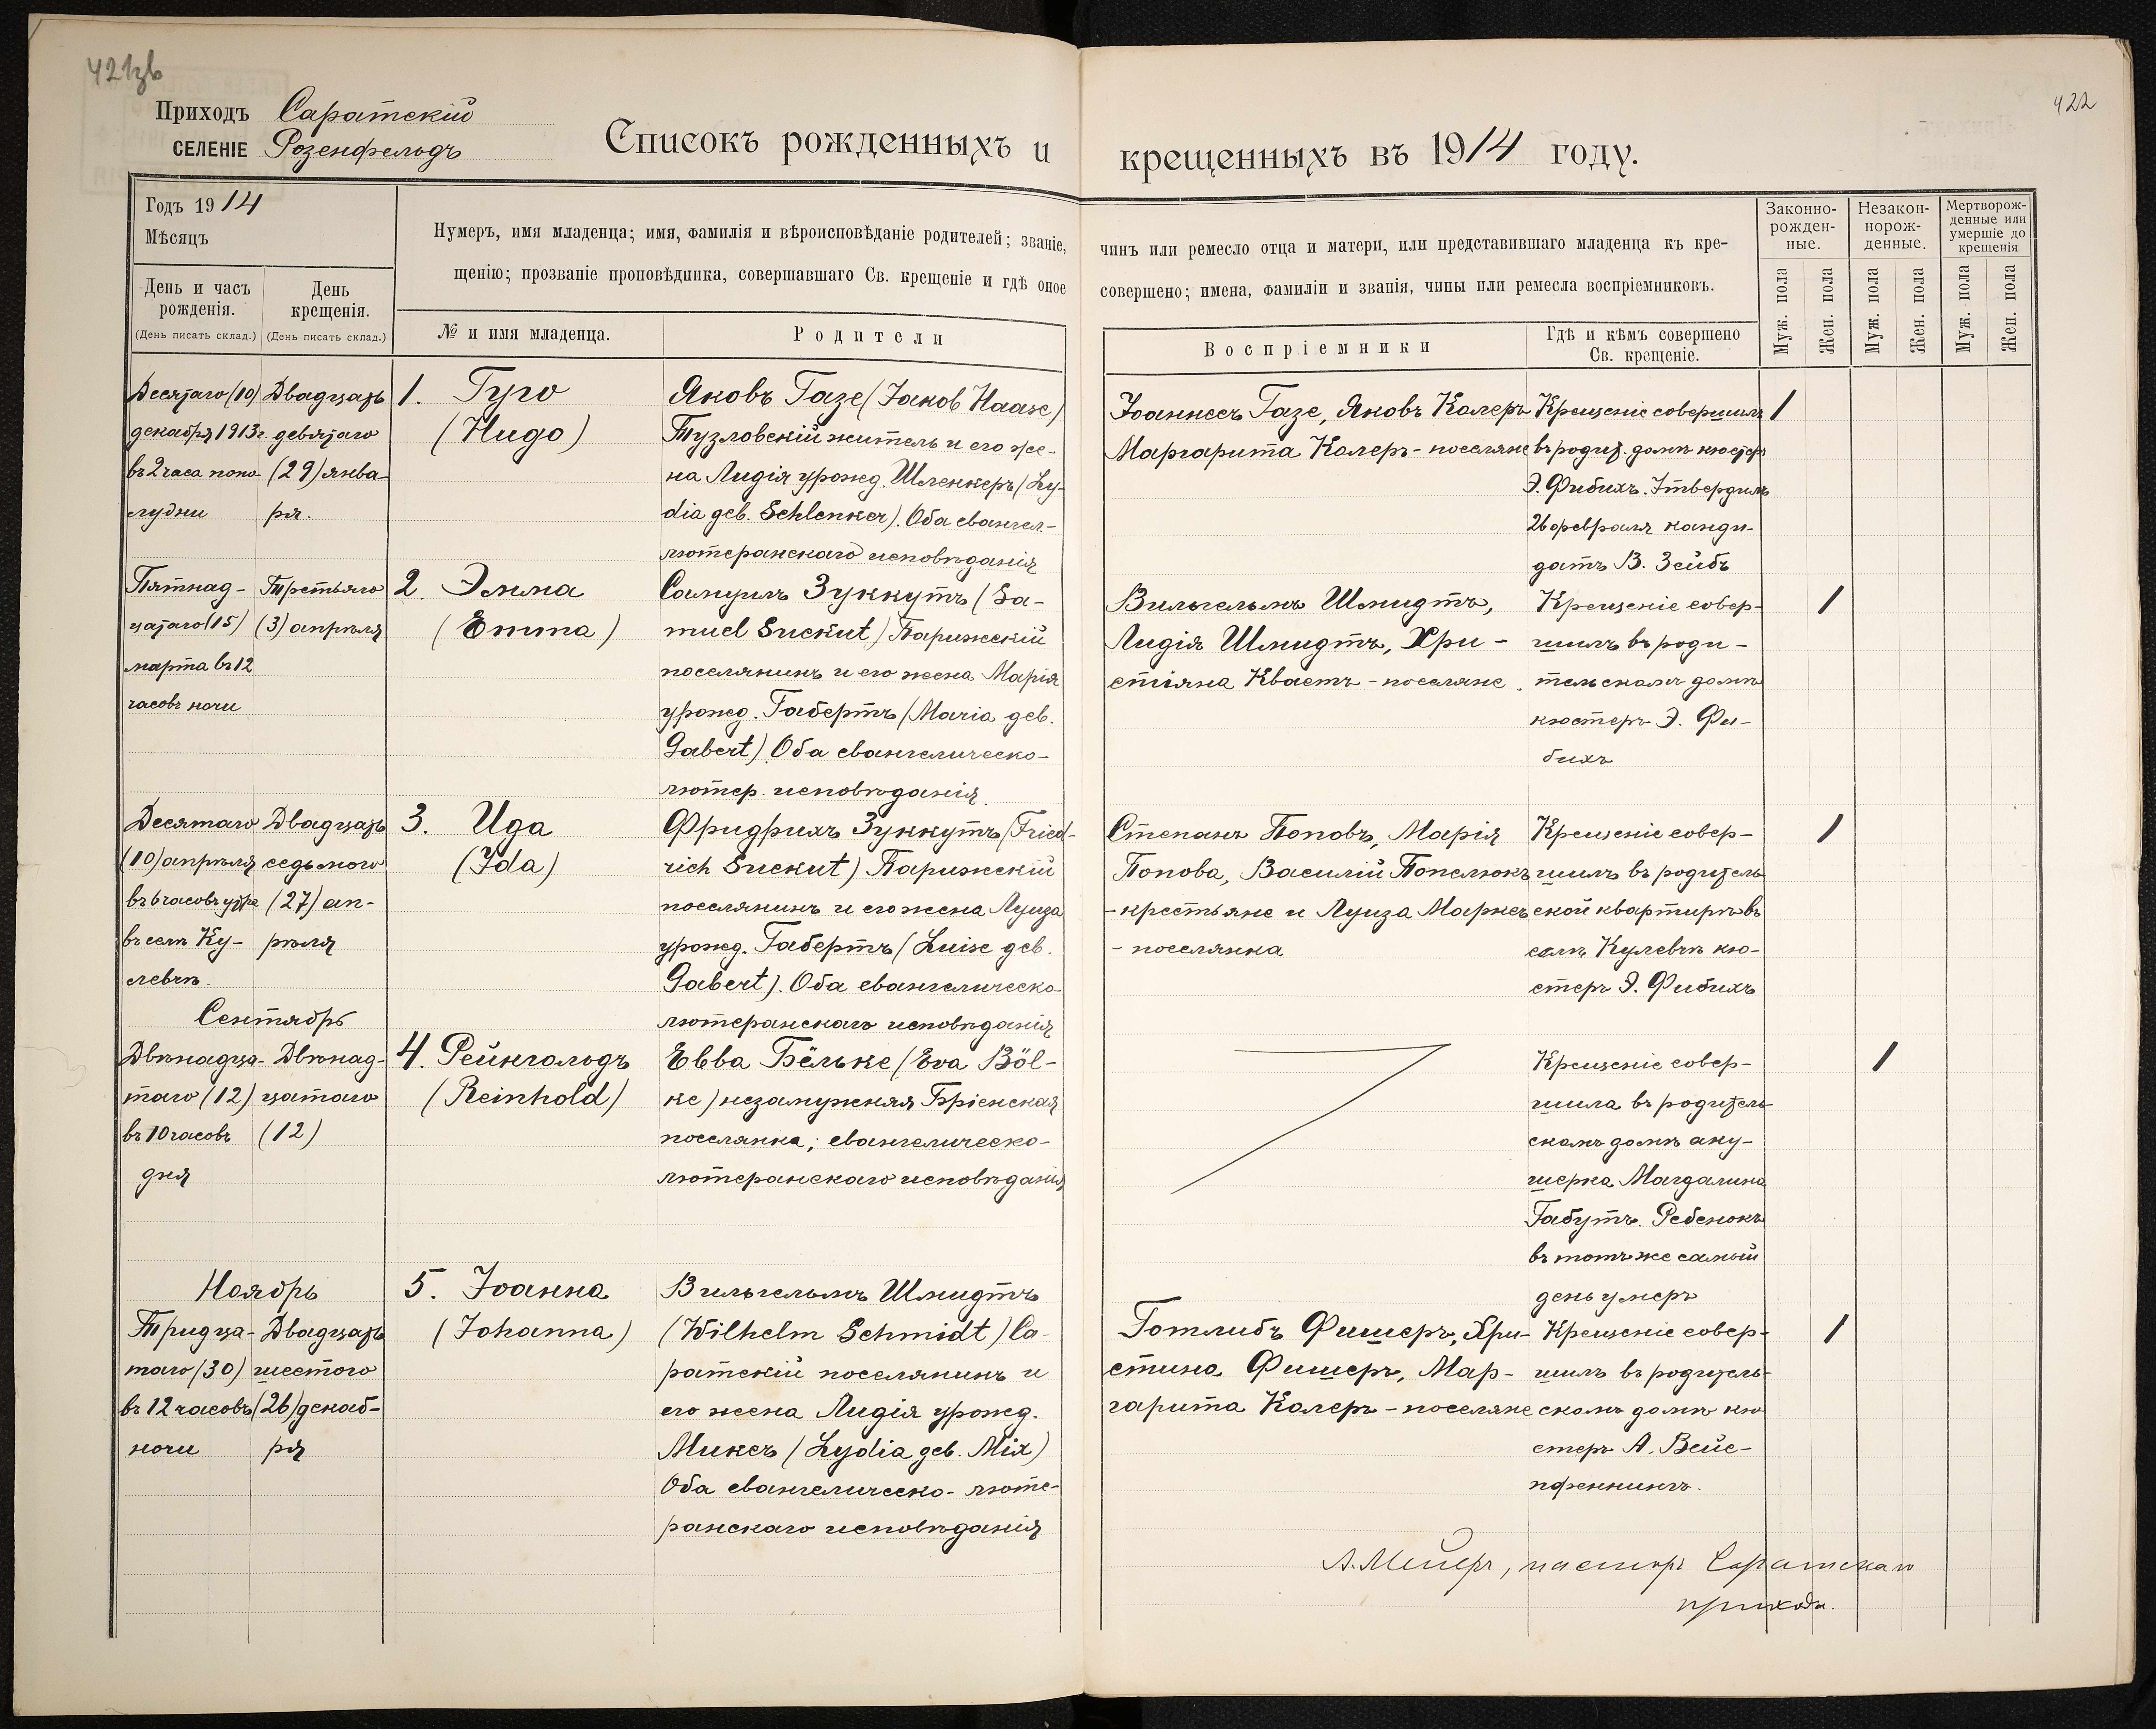 421зв
422
Приходъ Саратскій
СЕЛЕНІЕ Розенфельдъ
Списокъ рожденныхъ и крещенныхъ въ 1914 году.
Годъ 1914
Мѣсяцъ
День и часъ рожденія.
(День писать склад.)
День крещенія.
(День писать склад.)
Нумеръ, имя младенца; имя, фамилія и вѣроисповѣданіе родителей; званіе, чинъ или ремесло отца и матери, или представившаго младенца къ кре-
щенію; прозваніе проповѣдника, совершавшаго Св. крещеніе и гдѣ оное совершено; имена, фамиліи и званія, чины или ремесла воспріемниковъ.
№ и имя младенца.
Родители
Воспріемники
Гдѣ и кѣмъ совершено
Св. крещеніе.
Законно-
рожден-
ные.
Незакон-
норож-
денные.
Мертворож-
денные или
умершіе до
крещенія
Муж. пола
Жен. пола
Муж. пола
Жен. пола
Муж. пола
Жен. пола
Десятаго (10)
декабря 1913 г.
въ 2 часа попо-
лудни
Двадцать
девятаго
(29) янва-
ря.
1. Гуго
(Hugo)
Яковъ Газе (Jakob Haase)
Тузловскій житель и его же-
на Лидія урожд. Шленкеръ (Ly-
dia geb. Schlenker). Оба евангел.-
лютеранскаго исповѣданія
Іоаннесъ Газе, Яковъ Калеръ
Маргарита Калеръ - поселяне
Крещеніе совершилъ
въ родит. домѣ кюстеръ
Э. Фибихъ. Утвердилъ
26 февраля канди-
датъ В. Зейбъ
1
Пятнад-
цатаго (15)
марта въ 12
часовъ ночи
Третьяго
(3) апрѣля
2. Эмма
(Emma)
Самуилъ Зуккутъ (Sa-
muel Suckut) Парижскій
поселянинъ и его жена Марія
урожд. Габертъ (Maria geb.
Gabert). Оба евангелическо-
лютер. исповѣданія.
Вильгельмъ Шмидтъ,
Лидія Шмидтъ, Хри-
стіяна Квастъ - поселяне.
Крещеніе совер-
шилъ въ роди-
тельскомъ домѣ
кюстеръ Э. Фи-
бихъ
1
Десятаго
(10) апрѣля
въ 6 часовъ утра
въ селѣ Ку-
левчѣ.
Двадцать
седьмого
(27) ап-
рѣля
3. Ида
(Ida)
Фридрихъ Зуккутъ (Fried-
rich Suckut) Парижскій
поселянинъ и его жена Луиза
урожд. Габертъ (Luise geb.
Gabert). Оба евангелическо-
лютеранскаго исповѣданія
Степанъ Поповъ, Марія
Попова, Василій Попелюкъ
- крестьяне и Луиза Марксъ
- поселянка
Крещеніе совер-
шилъ въ родитель-
ской квартирѣ въ
селѣ Кулевчѣ кю-
стеръ Э. Фибихъ
1
Сентябрь
Двѣнадца-
таго (12)
въ 10 часовъ
дня
Двѣнад-
цатаго
(12)
4. Рейнгольдъ
(Reinhold)
Евва Бёльке (Eva Böl-
ke) незамужняя Бріенская
поселянка; евангелическо-
лютеранскаго исповѣданія
Крещеніе совер-
шила въ родитель-
скомъ домѣ аку-
шерка Магдалина
Габутъ. Ребенокъ
въ тотъ же самый
день умеръ
1
Ноябрь
Тридца-
таго (30)
въ 12 часовъ
ночи
Двадцать
шестого
(26) декаб-
ря
5. Іоанна
(Johanna)
Вильгельмъ Шмидтъ
(Wilhelm Schmidt) Са-
ратскій поселянинъ и
его жена Лидія урожд.
Миксъ (Lydia geb. Mix)
Оба евангелическо-люте-
ранскаго исповѣданія
Готлибъ Фишеръ, Хри-
стина Фишеръ, Мар-
гарита Калеръ - поселяне
Крещеніе совер-
шилъ въ родитель-
скомъ домѣ кю
стеръ А. Вейс-
пфеннингъ.
1
А. Мейеръ, пасторъ Саратскаго
прихода.